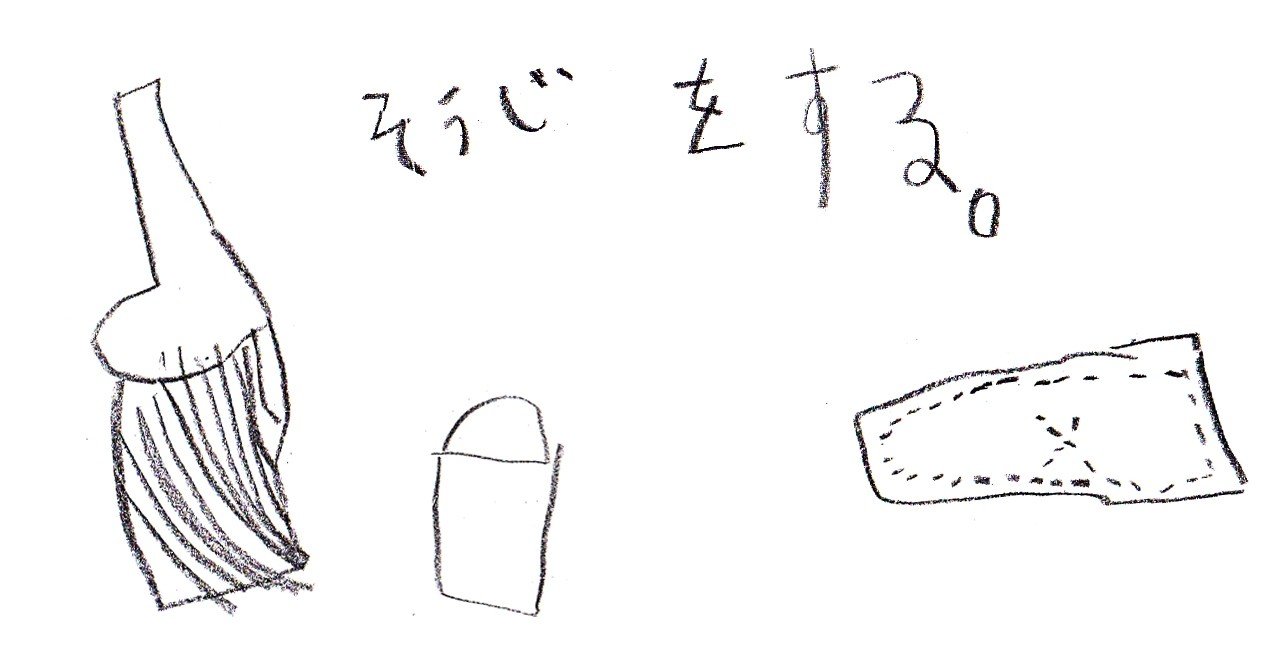 そうじをする。